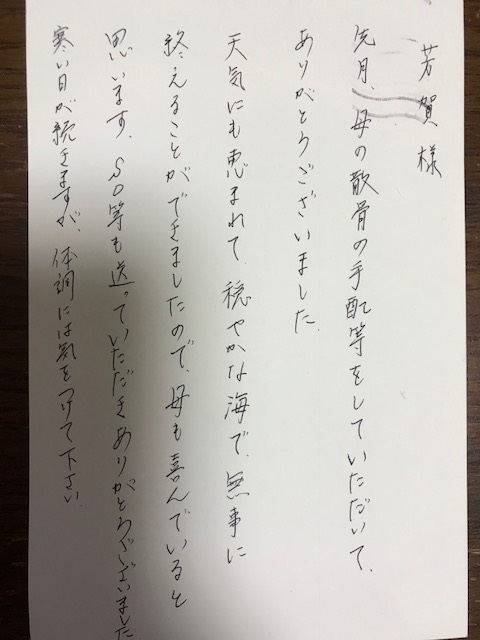 芳賀様
先月、母の散骨の手配等をしていただいて、
ありがとうございました。
天気にも恵まれて、穏やかな海で、無事に
終えることができましたので、母も喜んでいると
思います。SD等も送っていただきありがとうございました
寒い日が続きますが、体調には気をつけて下さい。